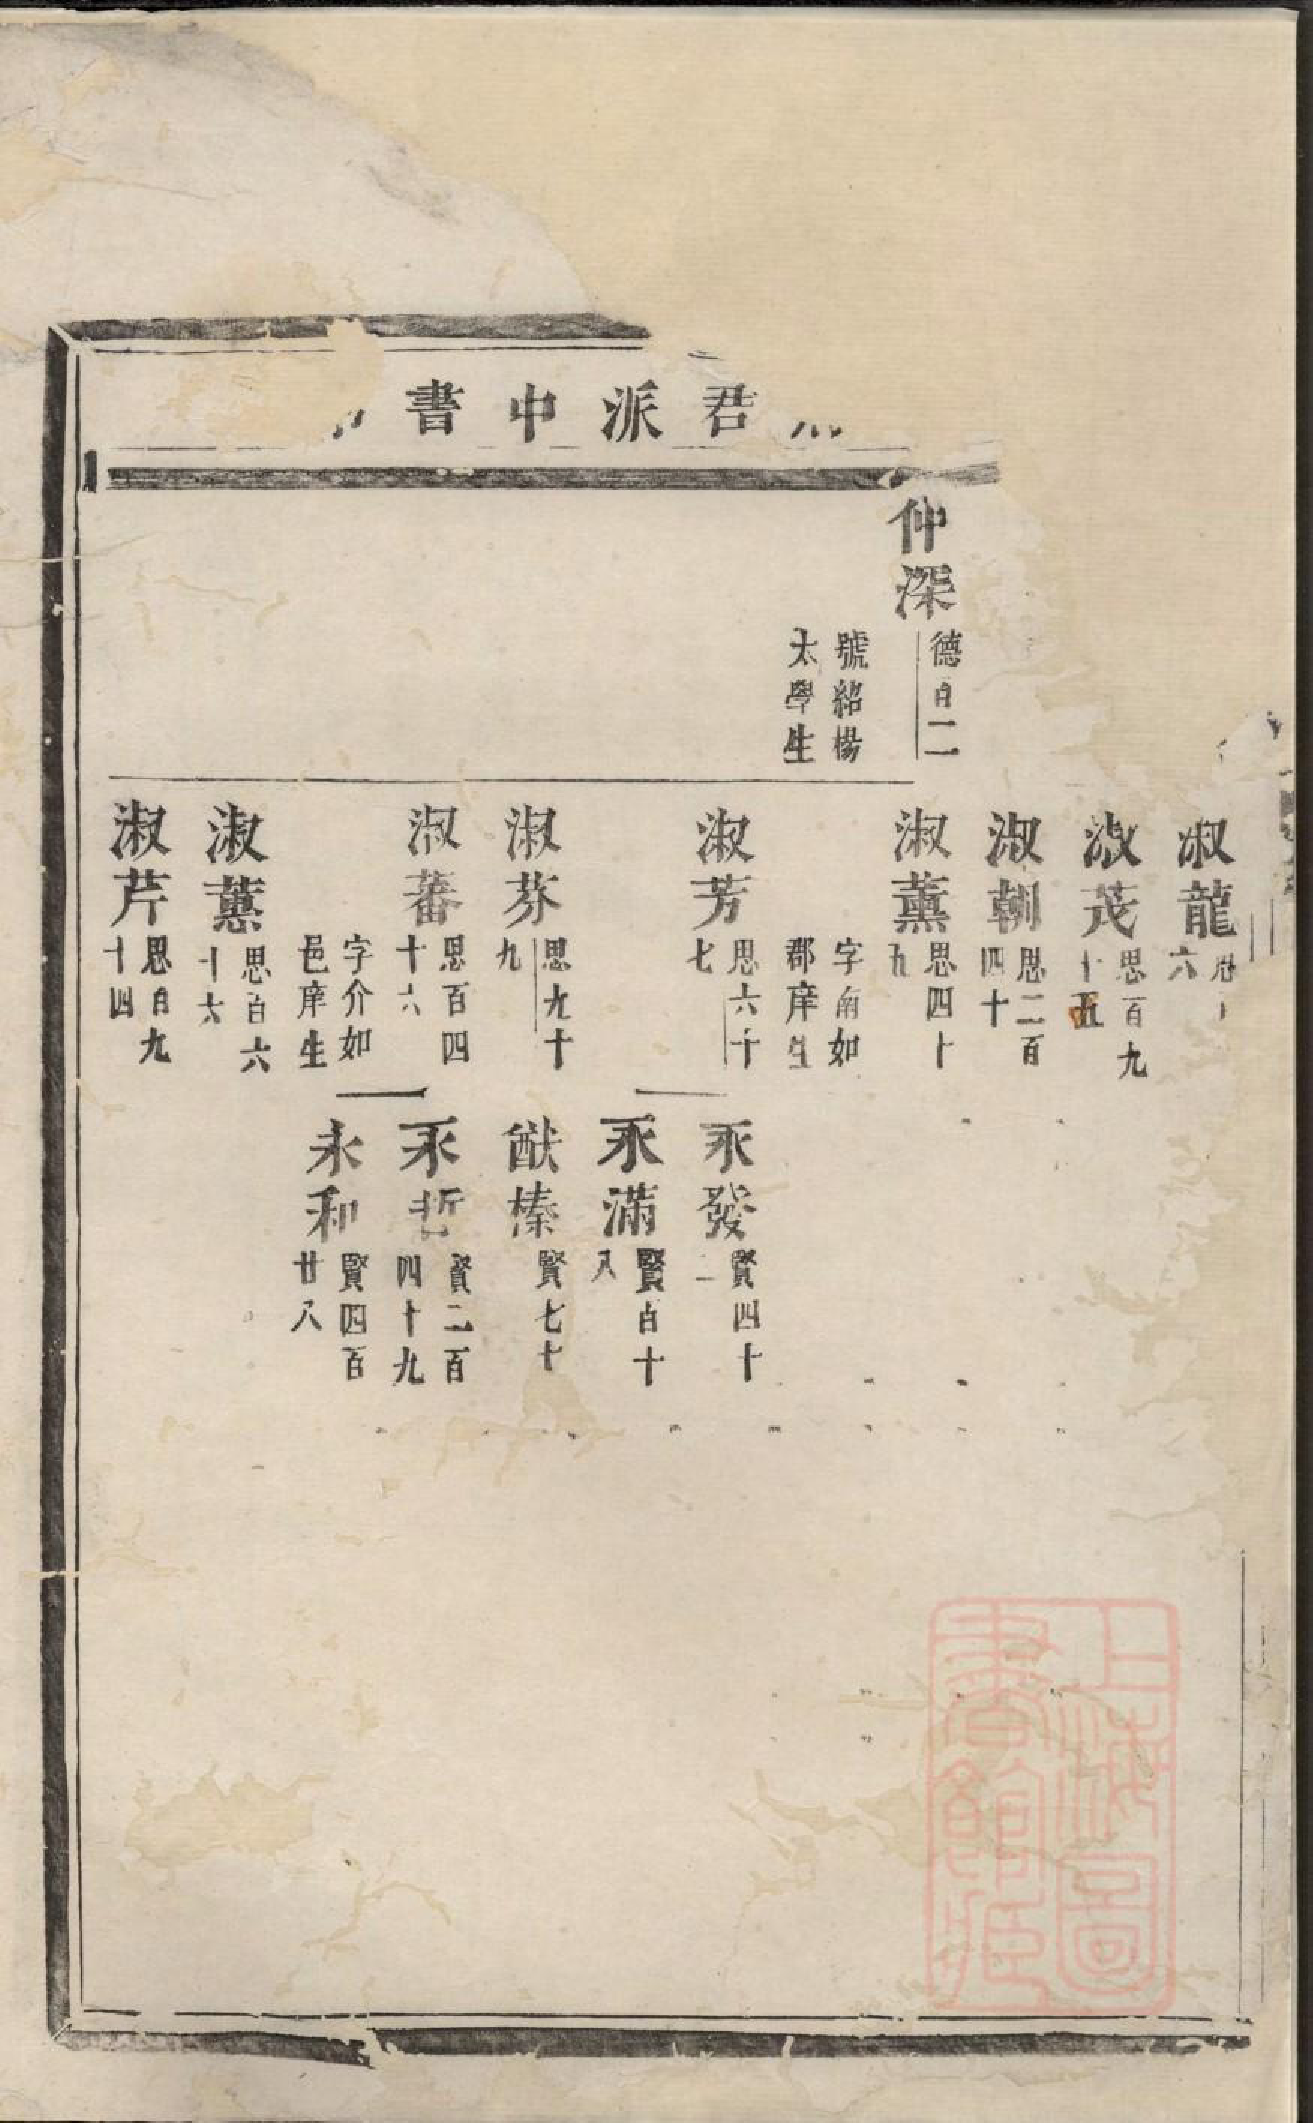 君派中書
仲深
德百二
號紹楊
太學生
淑龍
六
淑茂
思百九
十五
淑朝
思二百
四十
淑薰
思四十
九
字南如
郡庠生
淑芳
思六十
七
淑芬
思九十
九
淑蕃
思百四
十六
字介如
邑庠生
淑蕙
思百六
十六
淑芹
思百九
十四
永發
賢四十
二
永滿
賢百十
八
猷榛
賢七十
永哲
賢二百
四十九
永和
賢四百
廿八
上海圖
書館藏